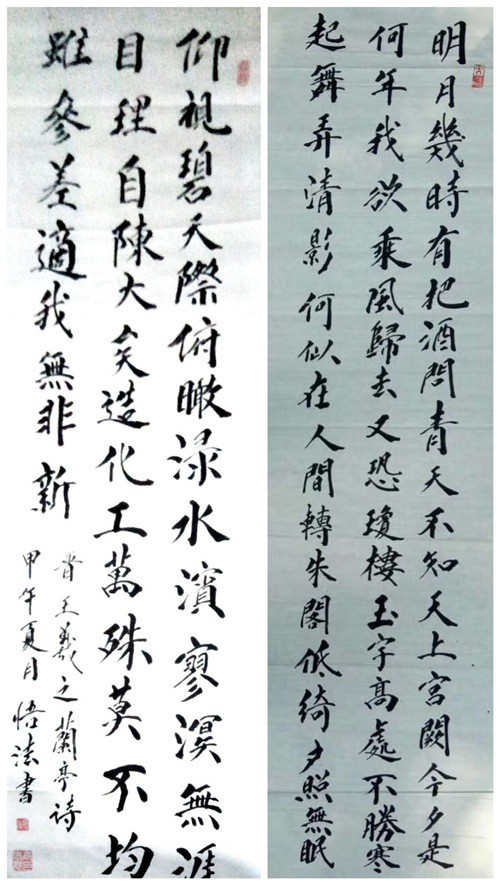 仰視碧天際俯瞰渌水濱寥溟無涯
目理自陳大矣造化工萬殊莫不均
雖參差適我無非新
晋王羲之蘭亭诗
甲午夏月悟法書
明月幾時有把酒問青天不知天上宮闕今夕是
何年我欲乘風歸去又恐瓊樓玉宇高處不勝寒
起舞弄清影何似在人間轉朱閣低綺户照無眠